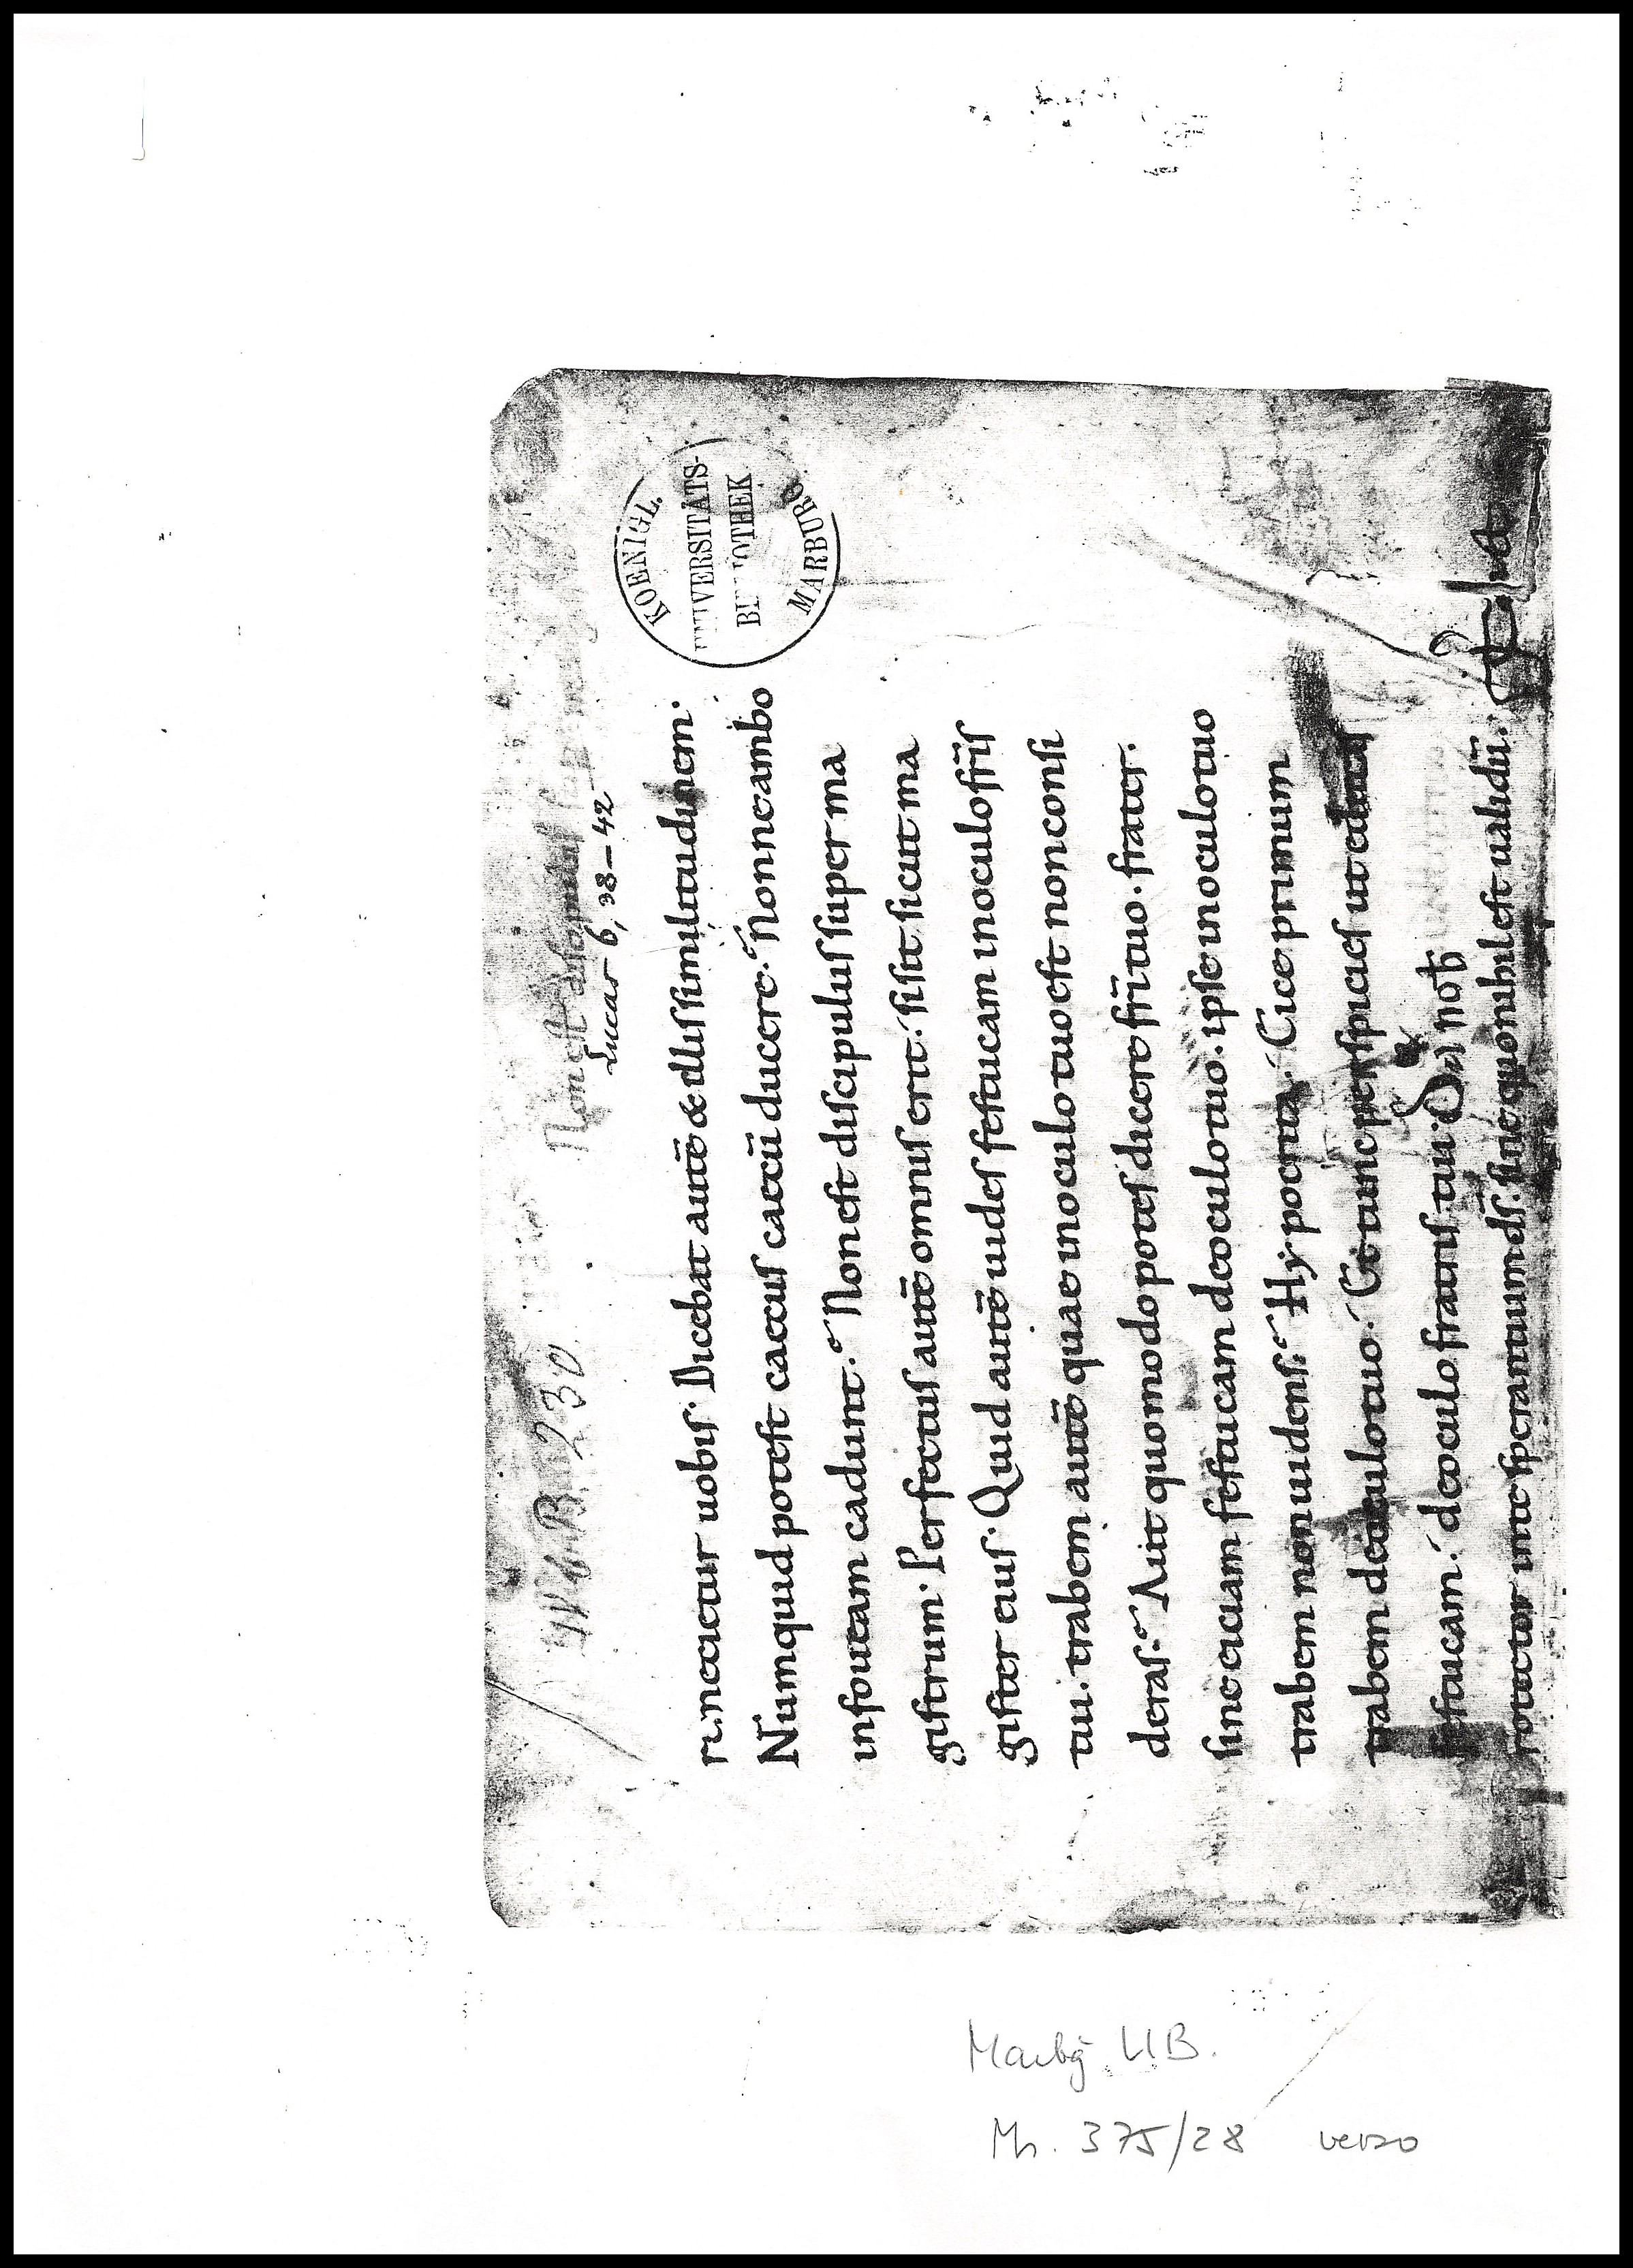 Non est discipulus sup
Lucas 6, 38–42
230
KOENIGL.
UNIVERSITÄTS-
BIBLIOTHEK
MARBURG
metietur uobis. Dicebat autē & illis similitudinem.
Numquid potest caecus caecū ducere. Nonne ambo
in foueam cadunt. Non est discipulus super ma
gistrum. Perfectus autē omnis erit. si sit sicut ma
gister eius. Quid autē uides festucam in oculo frīs
tui. trabem autē quae in oculo tuo est non consi
deras. Aut quomodo potes dicere frī tuo. frater.
sine eiciam festucam de oculo tuo. ipse in oculo tuo
trabem non uidens. Hypocrita. Eice primum
trabem de oculo tuo. Et tunc perspicies ut educas
festucam. de oculo fratris tui. Da nob
rotector in te sperantium ds̄. sine quo nihil est ualidū.
Marbg UB.
Hr. 375/28 verso